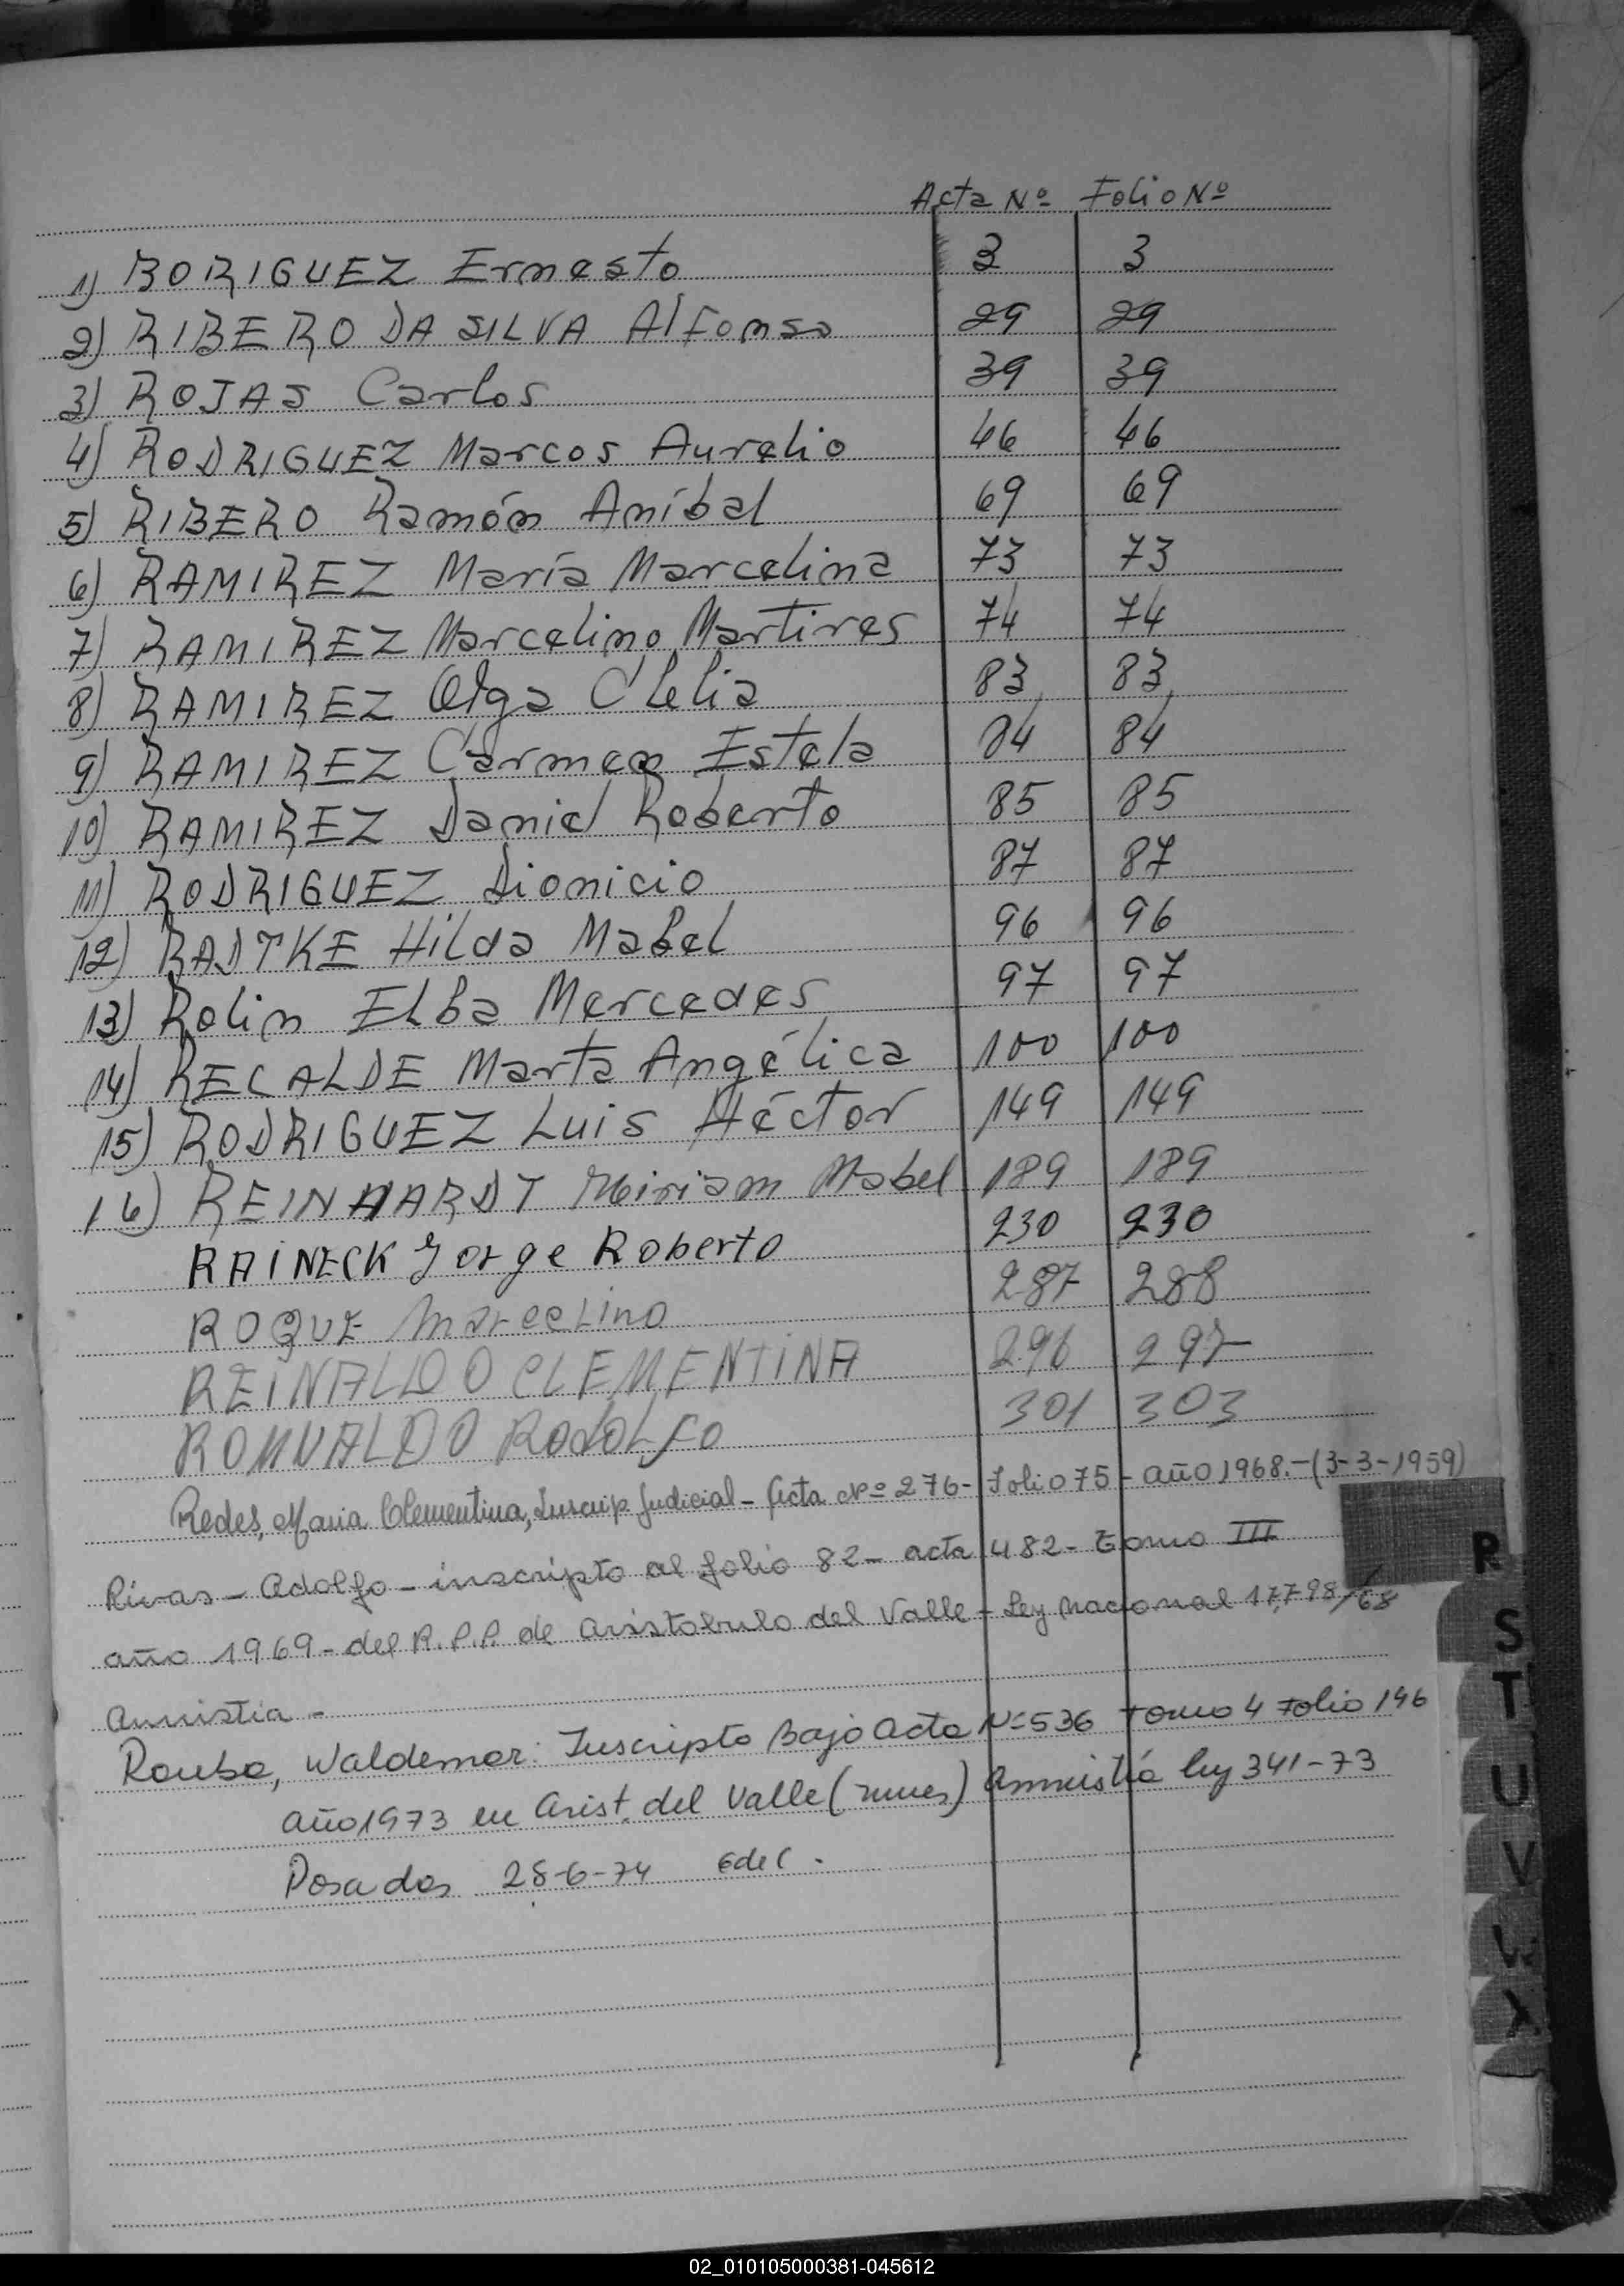 Acta Nº Folio Nº
1) BORIGUEZ Ernesto 3 3
2) RIBERO DA SILVA Alfonso 29 29
3) ROJAS Carlos 39 39
4) RODRIGUEZ Marcos Aurelio 46 46
5) RIBERO Ramón Aníbal 69 69
6) RAMIREZ María Marcelina 73 73
7) RAMIREZ Marcelino Martires 74 74
8) RAMIREZ Olga Clelia 83 83
9) RAMIREZ Carmen Estela 84 84
10) RAMIREZ Daniel Roberto 85 85
11) RODRIGUEZ Dionicio 87 87
12) RADTKE Hilda Mabel 96 96
13) Rolin Elba Mercedes 97 97
14) RECALDE Marta Angélica 100 100
15) RODRIGUEZ Luis Héctor 149 149
16) REINHARDT Miriam Mabel 189 189
RAINECK Jorge Roberto 230 230
ROQUE Marcelino 287 288
REINALDO CLEMENTINA 296 297
ROMUALDO RODOLFO 301 303
Redes, Maria Clementina, Inscrip. Judicial - Acta Nº 276 - Folio 75 - año 1968.- (3-3-1959)
Rivas - Adolfo - inscripto al folio 82 - acta 482 - Tomo III
año 1969 - del R.P.P. de Aristobulo del Valle - Ley nacional 17.798/68
Amnistia -
Rouba, Waldemar: Inscripto Bajo Acta Nº 536 tomo 4 Folio 146
año 1973 en Arist. del Valle (mnes) Amnistía ley 341-73
Posadas 28-6-74
R
S
T
U
V
W
X
02_010105000381-045612